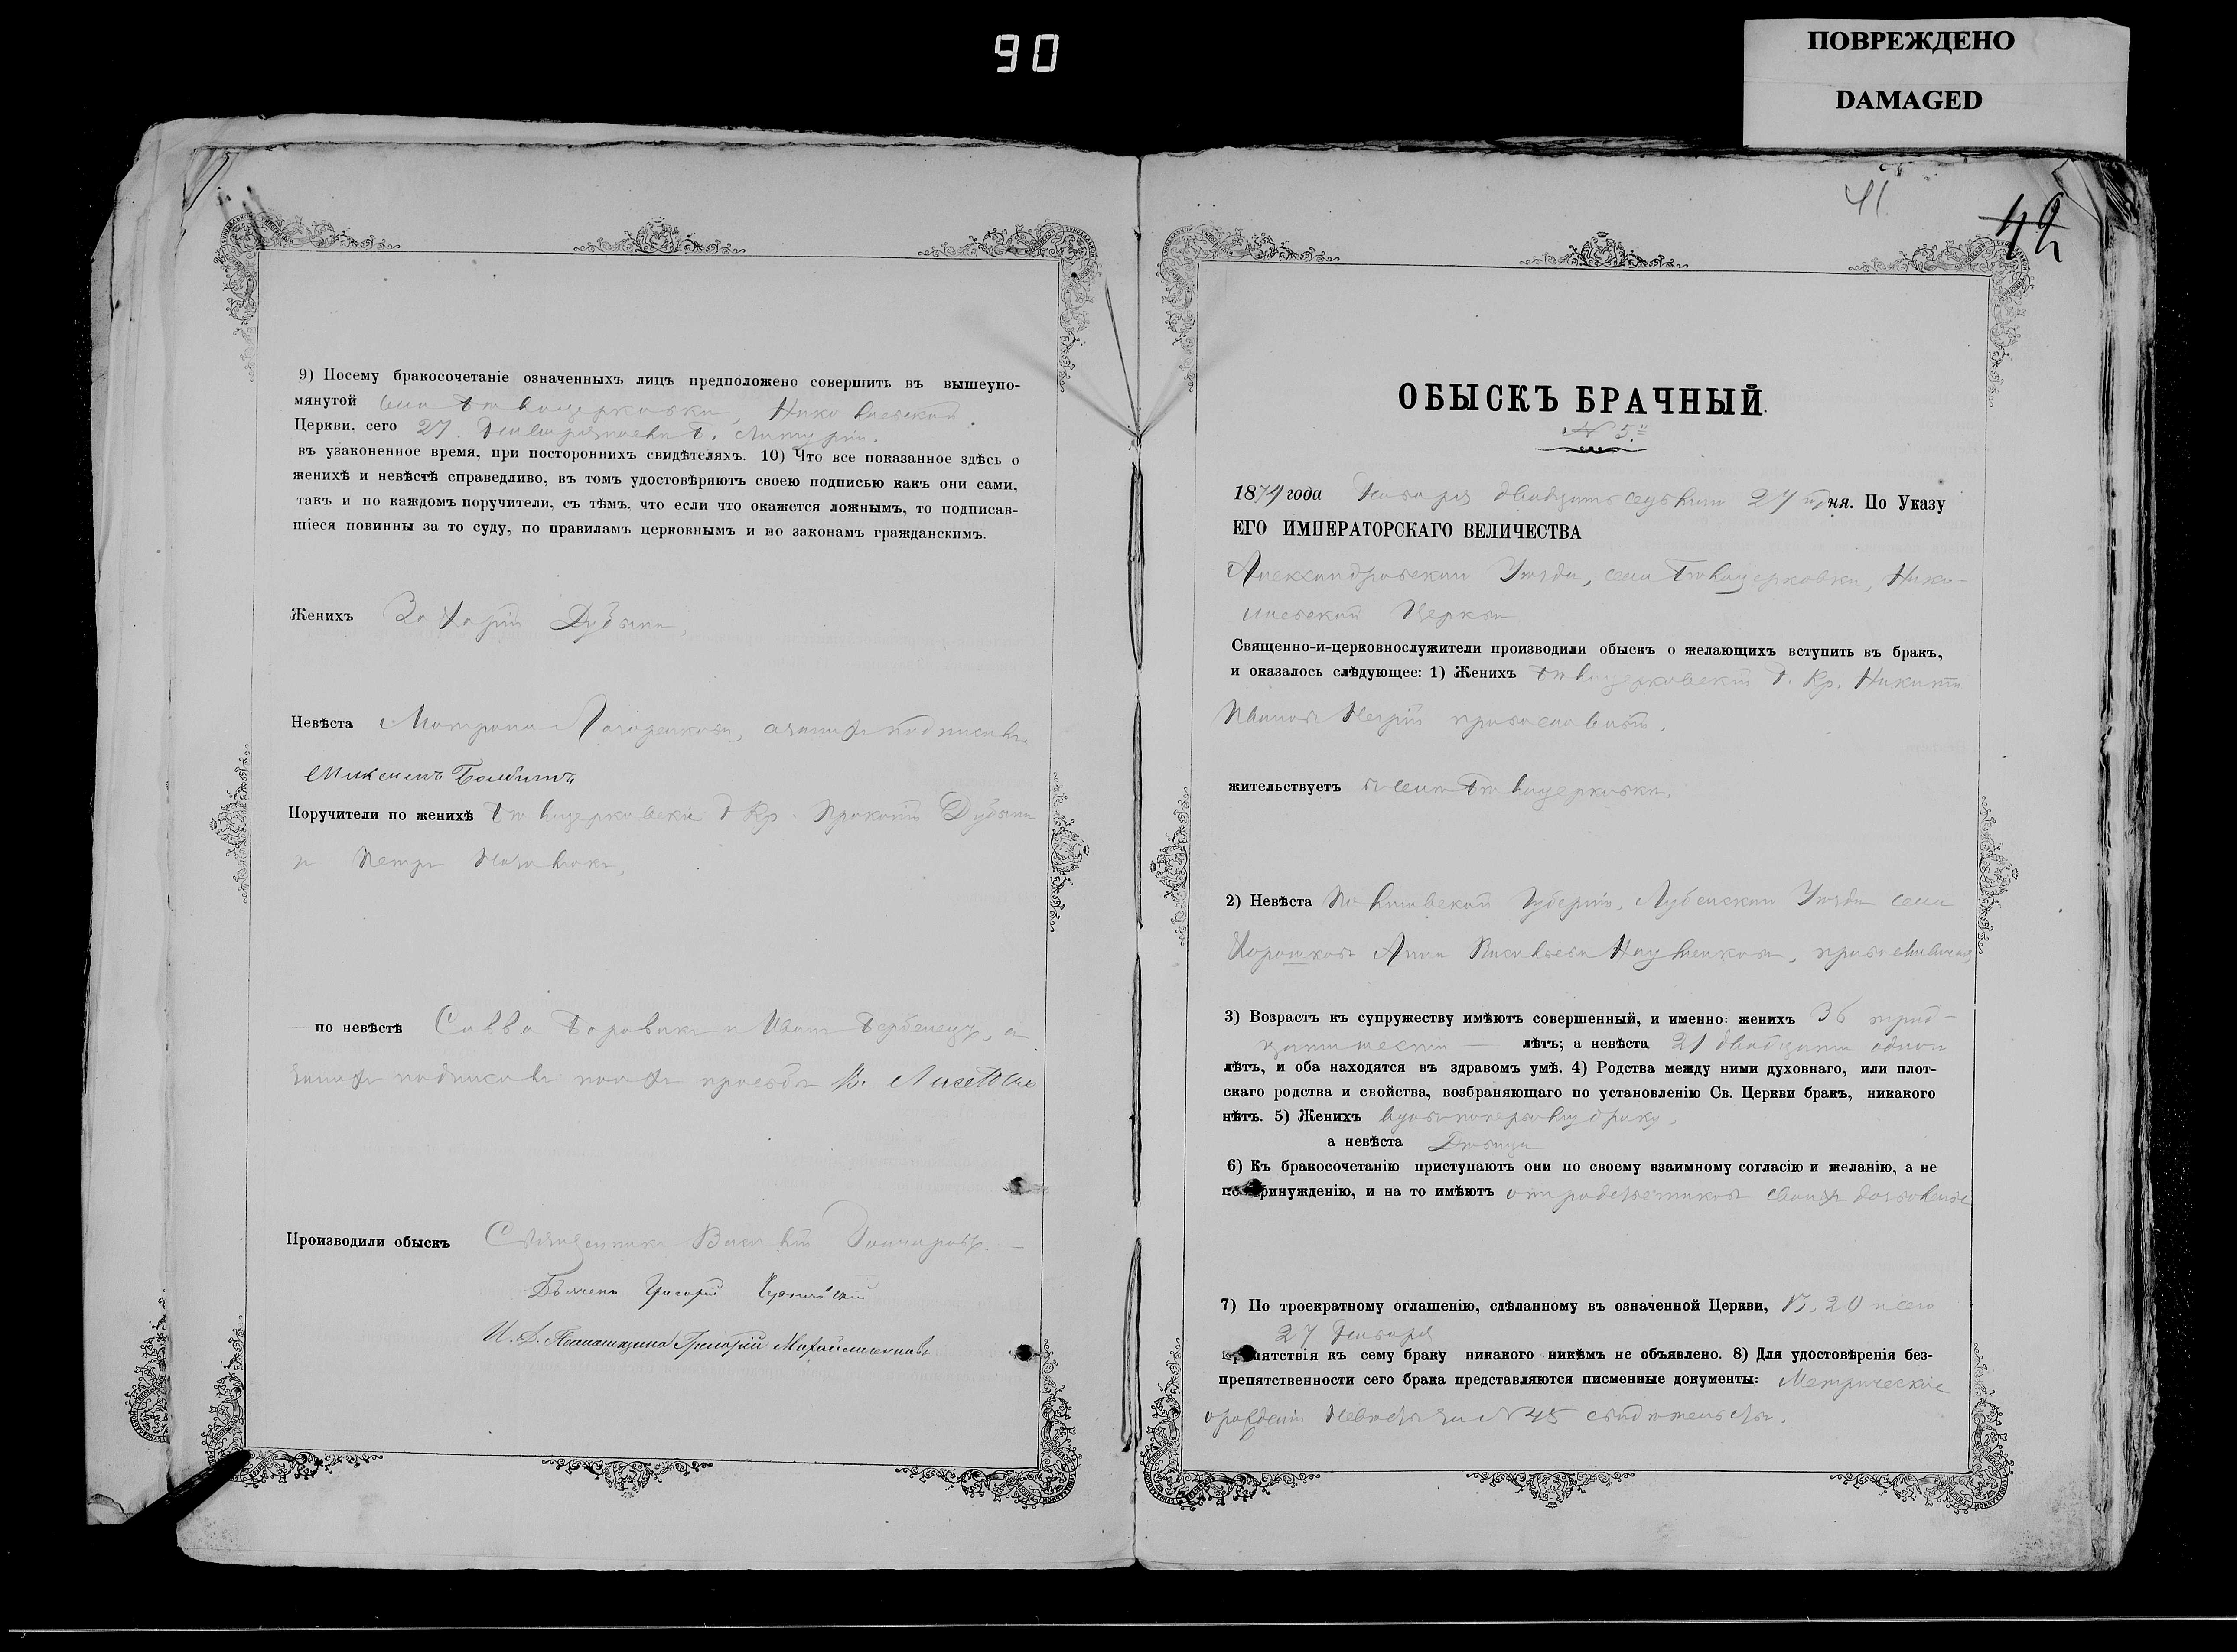 90
ПОВРЕЖДЕНО
DAMAGED
9) Посему бракосочетаніе означенныхъ лицъ предположено совершить въ вышеупо-
мянутой села
Церкви. сего 27.
въ узаконенное время, при постороннихъ свидѣтеляхъ. 10) Что все показанное здѣсь о
женихѣ и невѣстѣ справедливо, въ томъ удостовѣряютъ своею подписью какъ они сами,
такъ и по каждомъ поручители, съ тѣмъ, что если что окажется ложнымъ, то подписав-
шіеся повинны за то суду, по правиламъ церковнымъ и по законамъ гражданскимъ.
Женихъ Захарій Дубына,
Невѣста Матрона
Максимъ
Поручители по женихѣ Кр. Прокопій Дубына
и Петръ
по невѣстѣ Савва Боровикъ и Иванъ
подписалъ по ихъ прозьбѣ В.
Производили обыскъ Священникъ Василій Гончаровъ.
Дьячекъ Григорій
И. Д. Псаломщика Григорій
41
42
ОБЫСКЪ БРАЧНЫЙ.
№ 5.й
1874 года Января двадцать седьмаго 27 дня. По Указу
ЕГО ИМПЕРАТОРСКАГО ВЕЛИЧЕСТВА
Александровскаго Уѣзда, села Бѣлоцерковки, Нико-
лаевской Церкви
Священно-и-церковнослужители производили обыскъ о желающихъ вступить въ бракъ,
и оказалось слѣдующее: 1) Женихъ Кр. Никита
Ивановъ православный.
жительствуетъ въ селѣ Бѣлоцерковки.
2) Невѣста Полтавской Губерніи, Лубенскаго Уѣзда села
Хорошковъ Анна Васильева православная
3) Возрастъ къ супружеству имѣютъ совершенный, и именно: женихъ 36 трид-
цати шести лѣтъ; а невѣста 21 двадцати одного
лѣтъ, и оба находятся въ здравомъ умѣ. 4) Родства между ними духовнаго, или плот-
скаго родства и свойства, возбраняющаго по установленію Св. Церкви бракъ, никакого
нѣтъ. 5) Женихъ вдовъ по первому браку,
а невѣста Дѣвица
6) Къ бракосочетанію приступаютъ они по своему взаимному согласію и желанію, а не
по принужденію, и на то имѣютъ отъ родственниковъ своихъ дозволеніе
7) По троекратному оглашенію, сдѣланному въ означенной Церкви, 13, 20 и сего
27 Января
препятствія къ сему браку никакого никѣмъ не объявлено. 8) Для удостовѣренія без-
препятственности сего брака представляются писменные документы: Метрическіе
о рожденіи Невѣсты за № 45 свидѣтельства.